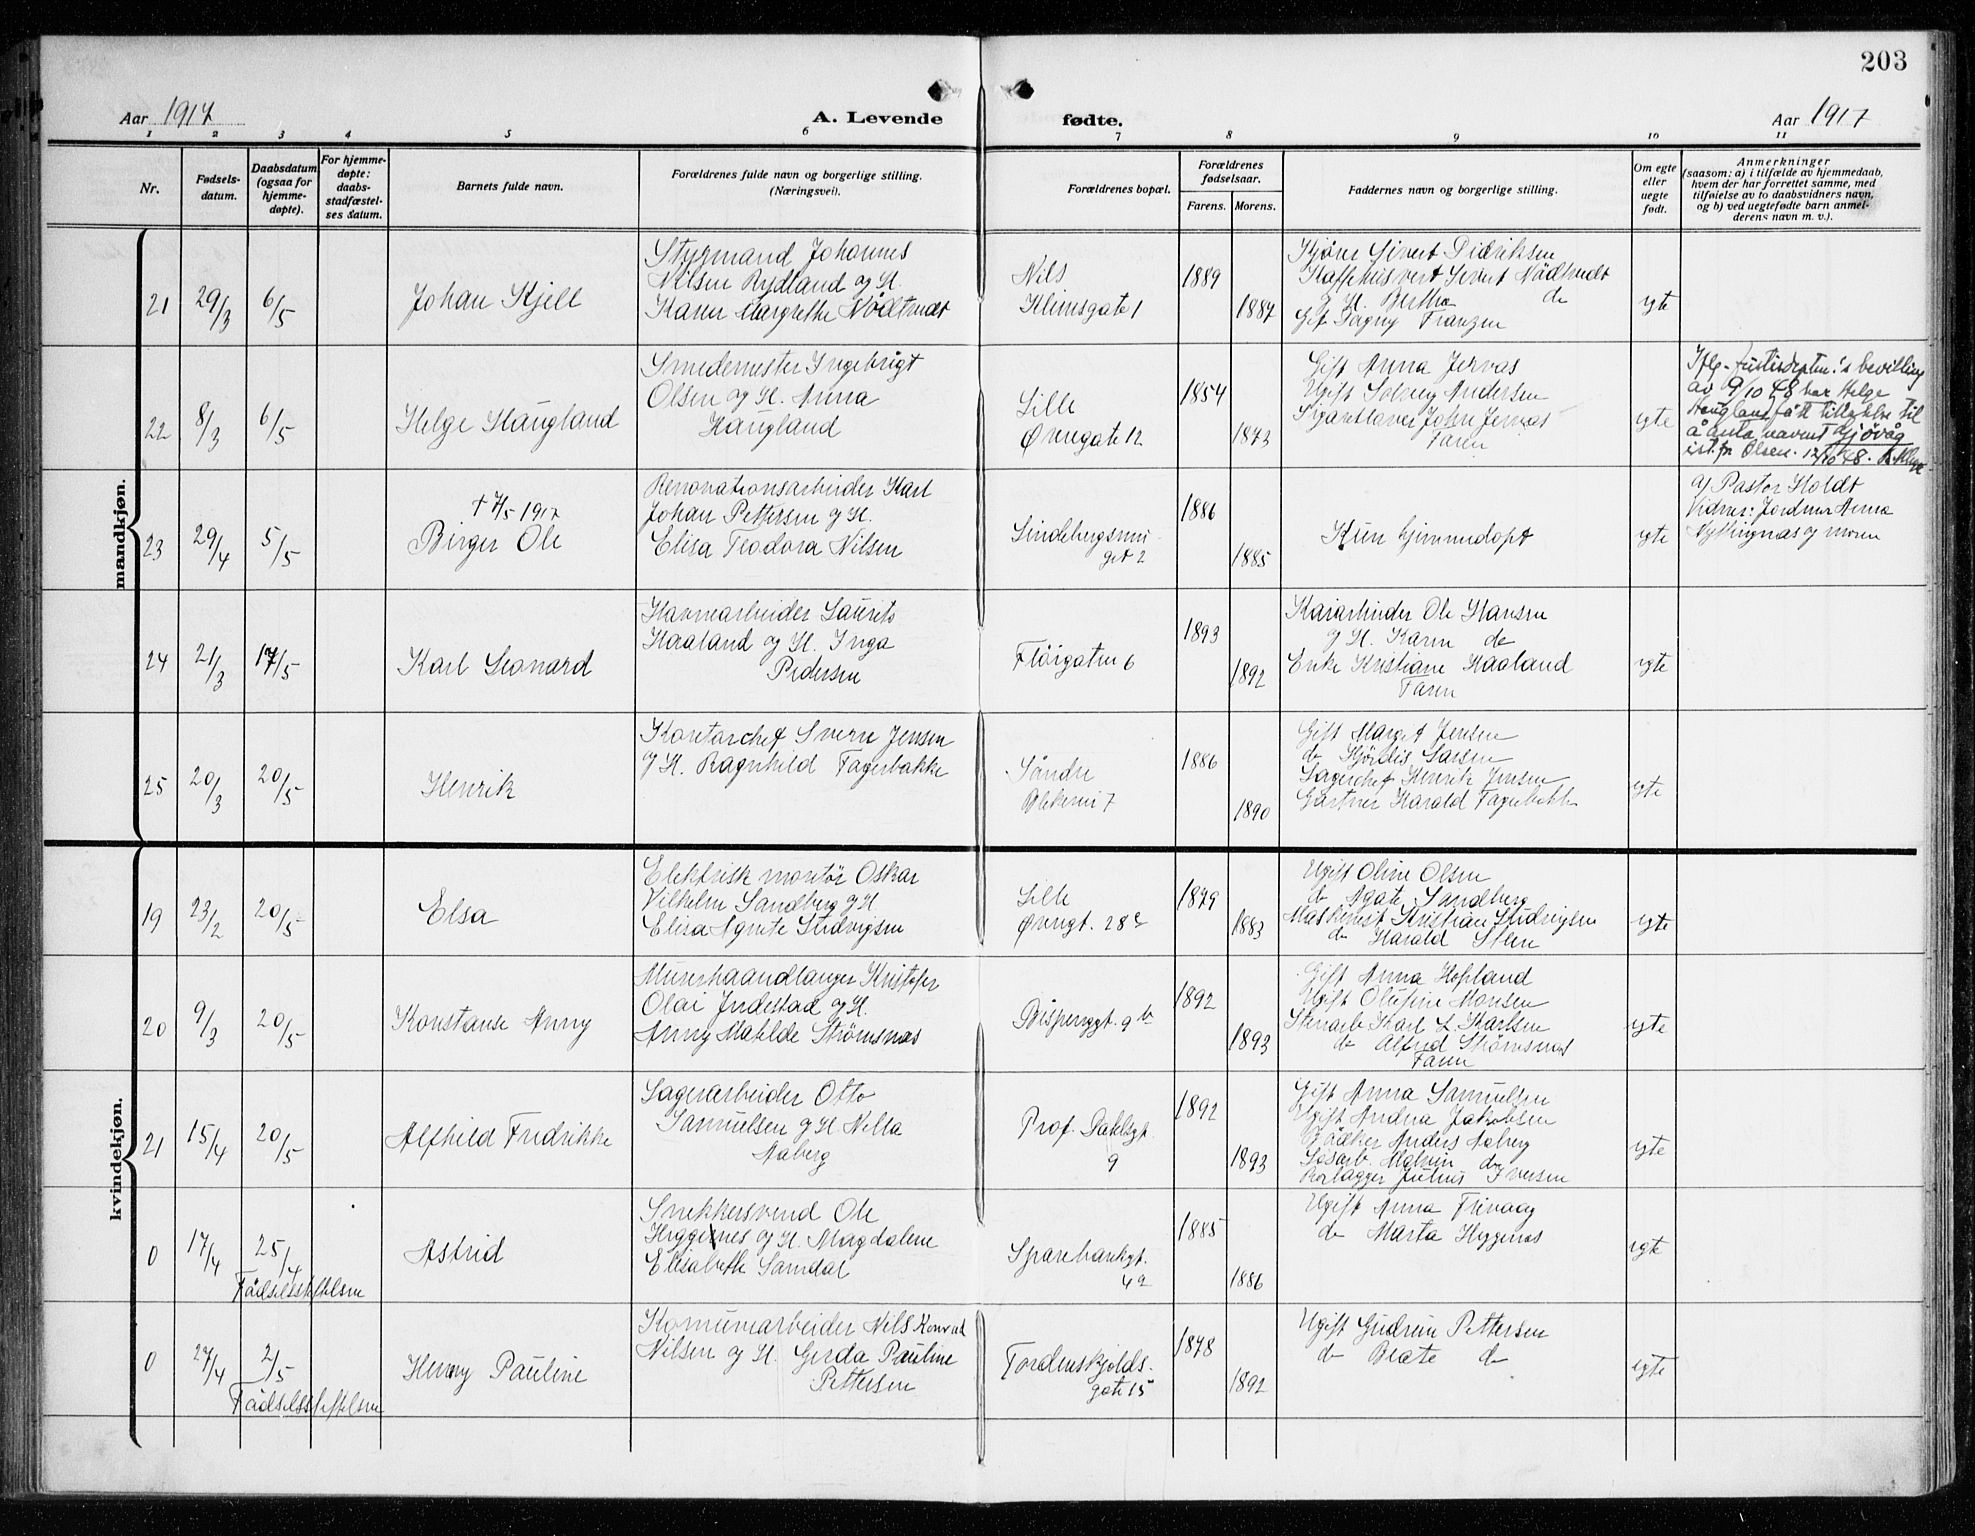 203
Aar 1917
A. Levende fødte.
Aar 1917
1 2 3 4 5 6 7 8 9 10 11
Nr.
Fødsels-
datum.
Daabsdatum
(ogsaa for
hjemme-
døpte).
For hjemme-
døpte:
daabs-
stadfæstel-
ses datum.
Barnets fulde navn.
Forældrenes fulde navn og borgerlige stilling.
(Næringsvei).
Forældrenes bopæl.
Forældrenes
fødselsaar.
Farens. Morens.
Faddernes navn og borgerlige stilling.
Om egte
eller
uegte
født.
Anmerkninger
(saasom: a) i tilfælde av hjemmedaab,
hvem der har forrettet samme, med
tilføielse av to daabsvidners navn,
og b) ved uegtefødte barn anmel-
derens navn m. v.).
mandkjøn.
21 29/3 6/5 Johan Kjell
Styrmand Johannes
Nilsen Rydland og H.
Karen Margrethe Nødtvedt
Nils
Klimsgate 1
1889 1887
Sivert Didriksen
Kaffehusvert Sivert Nødtvedt
og H. Bertha do
Gift Dagny Franzen
egte
22 8/3 6/5 Helge Haugland
Smedemester Ingebrigt
Olsen og H. Anna
Haugland
Lille
Øvregate 12
1854 1873
Gift Anna Jernas
Ugift Solveig Andersen
John Jernas
Faren
egte
Iflg. Justisdepten's bevilling
av 9/10 48 har Helge
Haugland fått tillatelse til
å anta navnet Gjøvåg
ist. fr Olsen. 12/10 48.
23 29/4 5/5
† 7/5 1917
Birger Ole
Renovationsarbeider Karl
Johan Pettersen og H.
Elisa Teodora Nilsen
1886 1885
Kun hjemmedøpt
egte
af Pastor Holdt
Vidner: Jordmor Anna
og moren
24 21/3 17/5 Karl Leonard
Havnearbeider Laurits
Haaland og H. Inga
Pedersen
Fløigaten 6
1893 1892
Kaiarbeider Ole Hansen
og H. Karen do
Enke Kristiane Haaland
Faren
egte
25 20/3 20/5 Henrik
Kontorchef Sverre Jensen
og H. Ragnhild Fagerbakke
Søndre
Blekevei 7
1886 1890
Gift Margit Jensen
do Hjördis Larsen
Lagerchef Henrik Jensen
Gartner Harald Fagerbakke
egte
kvindekjøn.
19 23/2 20/5 Elsa
Elektrisk montör Oskar
Vilhelm Sandberg og H.
Elisa Agnete Ludvigsen
Lille
Øvregt. 28c
1879 1883
Ugift Oline Olsen
do Agate Sandberg
Maskinist Kristian Ludvigsen
do Harald Steen
egte
20 9/3 20/5 Konstanse Anny
Murerhaandlanger Kristofer
Olai Indestad og H.
Anny Matilde Strømsnæs
Bispenggt. 9b
1892 1893
Gift Anna Hopland
Ugift Olufine Monsen
Stenarb Karl L Karlsen
do Alfred Strømsnæs
Faren
egte
21 15/4 20/5 Alfhild Fredrikke
Lagerarbeider Otto
Samuelsen og H Nella
Aaberg
Prof. Dahlsgt
9
1892 1893
Gift Anna Samuelsen
Ugift Andrea Jakobsen
Bödker Anders Aaberg
Løsarb. Malvin do
Rørlægger Julius Iversen
egte
0 17/4 25/4
Fødselsstiftelsen
Astrid
Snekkersvend Ole
Hyggenes og H. Magdalene
Elisabeth Samdal
Sparebankgt.
4a
1885 1886
Ugift Anna Flevaag
do Marta Hyggenes
egte
0 27/4 2/5
Fødselsstiftelsen
Henny Pauline
Komunearbeider Nils Konrad
Nilsen og H. Gerda Pauline
Pettersen
Tordenskjolds-
gate 15
1878 1892
Ugift Gudrun Pettersen
do Beate do
egte